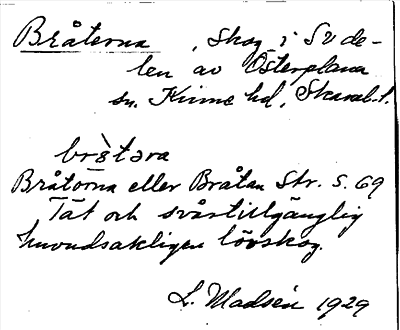 Bråterna, skog i SV de-
len av Österplana
sn. Kinne hd, Skarab. l.
bròtəra
Bråtorna eller Bråtan Str. s. 69
Tät och svårtillgänglig
huvudsakligen lövskog.
L. Madsén 1929